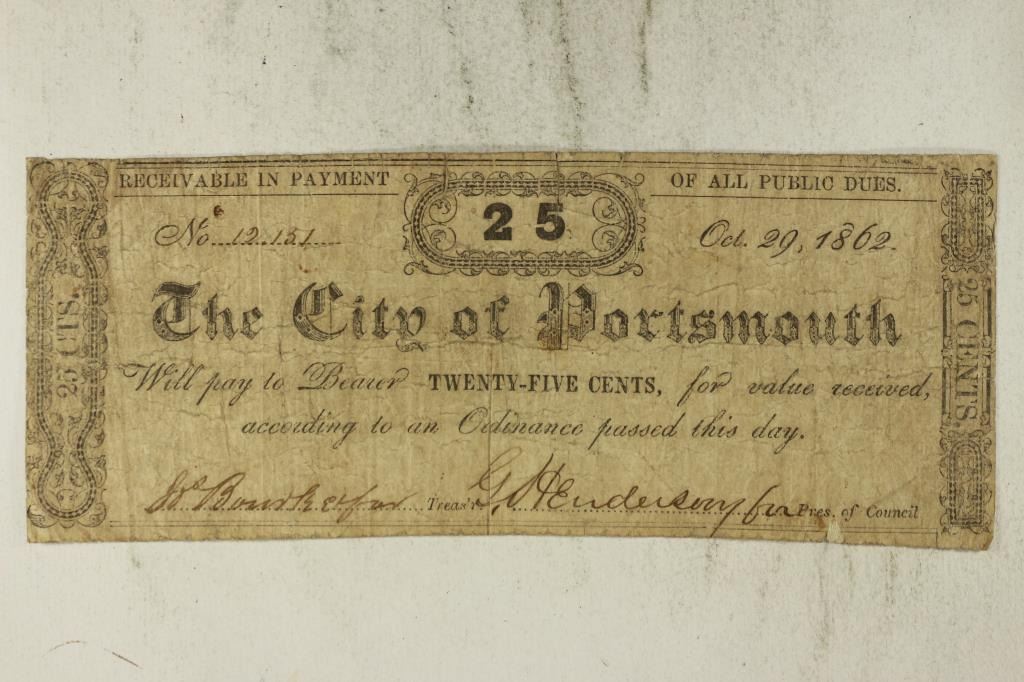 RECEIVABLE IN PAYMENT 25 OF ALL PUBLIC DUES.
No 12.151 Oct. 29, 1862
The City of Portsmouth
Will pay to Bearer TWENTY-FIVE CENTS, for value received,
according to an Ordinance passed this day.
for Treas'r G. Henderson for Pres. of Council
25 CTS.
25 CENTS.